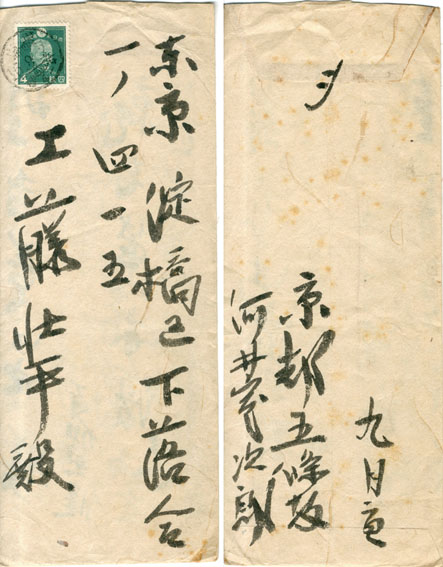 东京 淀橋区下落合
一ノ四一五
工藤壮平殿
4
〆
九月
京都五條坂
河井寛次郎